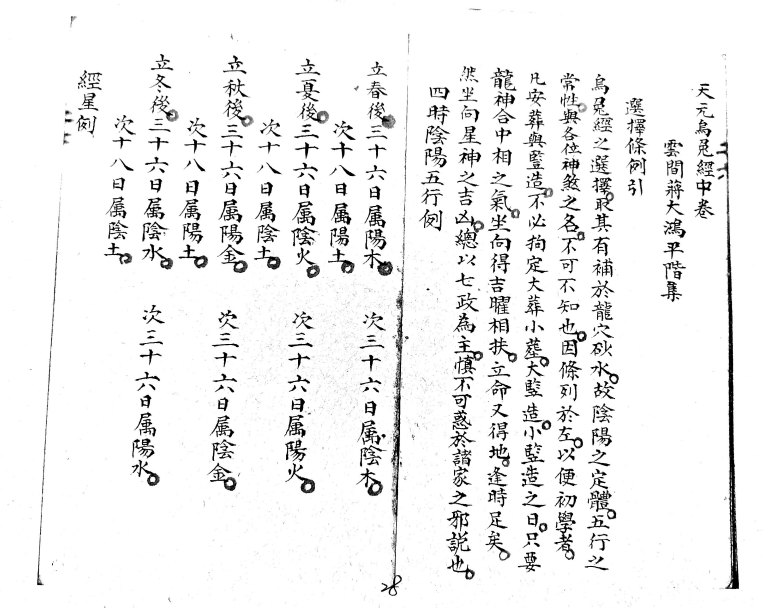 天元烏兎經中卷
雲間蔣大鴻平階集
選擇條例引
烏兎經之選擇。取其有補於龍穴砂水。故陰陽之定體。五行之
常性。與各位神煞之名。不可不知也。因條列於左。以便初學者。
凡安葬與豎造。不必拘定大葬小葬。大豎造小豎造之日。只要
龍神合中相之氣。坐向得吉曜相扶。立命又得地。逢時足矣。
然坐向星神之吉凶。總以七政為主。慎不可惑於諸家之邪説也。
四時陰陽五行例
立春後。三十六日属陽木。 次三十六日属陰木。
次十八日属陽土。
立夏後。三十六日属陰火。 次三十六日属陽火。
次十八日属陰土。
立秋後。三十六日属陽金。 次三十六日属陰金。
次十八日属陽土。
立冬後。三十六日属陰水。 次三十六日属陽水。
次十八日属陰土。
經星例
28